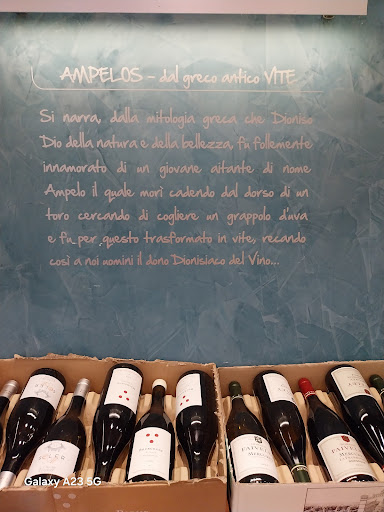 AMPELOS - dal greco antico VITE
Si narra, dalla mitologia greca che Dioniso
Dio della natura e della bellezza, fu follemente
innamorato di un giovane aitante di nome
Ampelo il quale morì cadendo dal dorso di un
toro cercando di cogliere un grappolo d'uva
e fu per questo trasformato in vite, recando
così a noi uomini il dono Dionisiaco del Vino...
FAIVELEY
Galaxy A23 5G